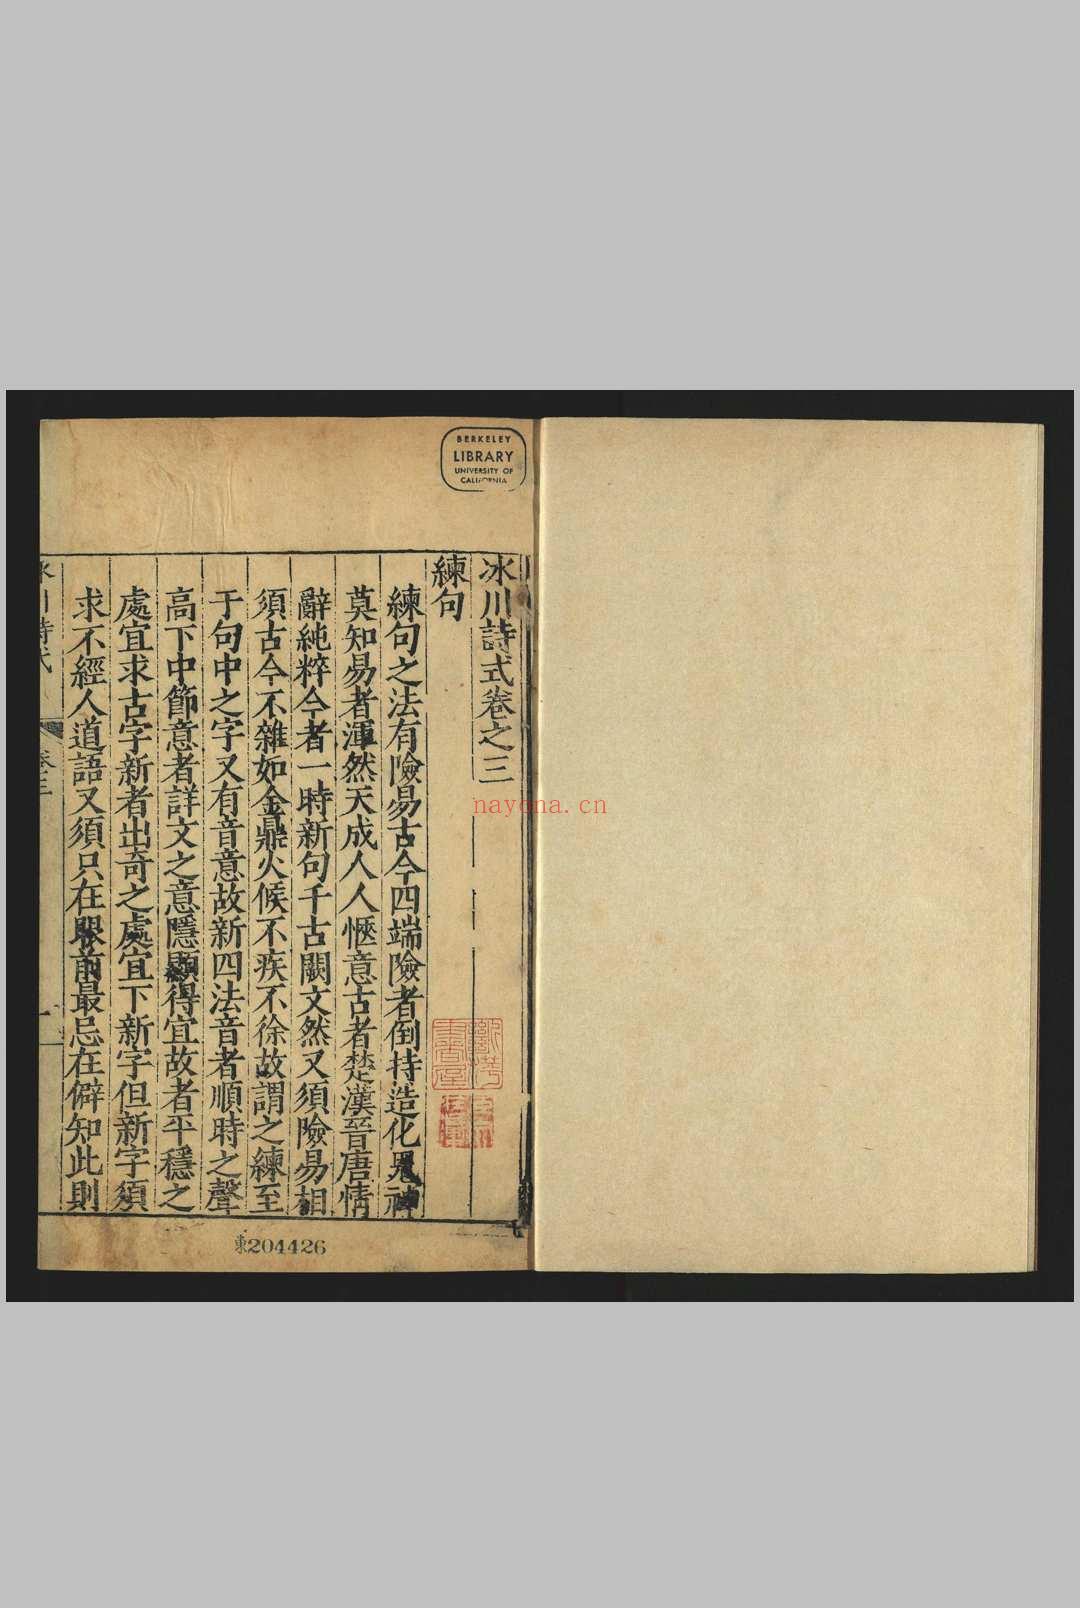 BERKELEY
LIBRARY
UNIVERSITY OF
CALIFORNIA
冰川詩式卷之三
練句
練句之法有險易古今四端險者倒持造化鬼神
莫知易者渾然天成人人愜意古者楚漢晉唐情
辭純粹今者一時新句千古闕文然又須險易相
須古今不雜如金鼎火候不疾不徐故謂之練至
于句中之字又有音意故新四法音者順時之聲
高下中節意者詳文之意隱顯得宜故者平穩之
處宜求古字新者出奇之處宜下新字但新字須
求不經人道語又須只在眼前最忌在僻知此則
冰川詩式
卷三
一
東204426
nayona.cn